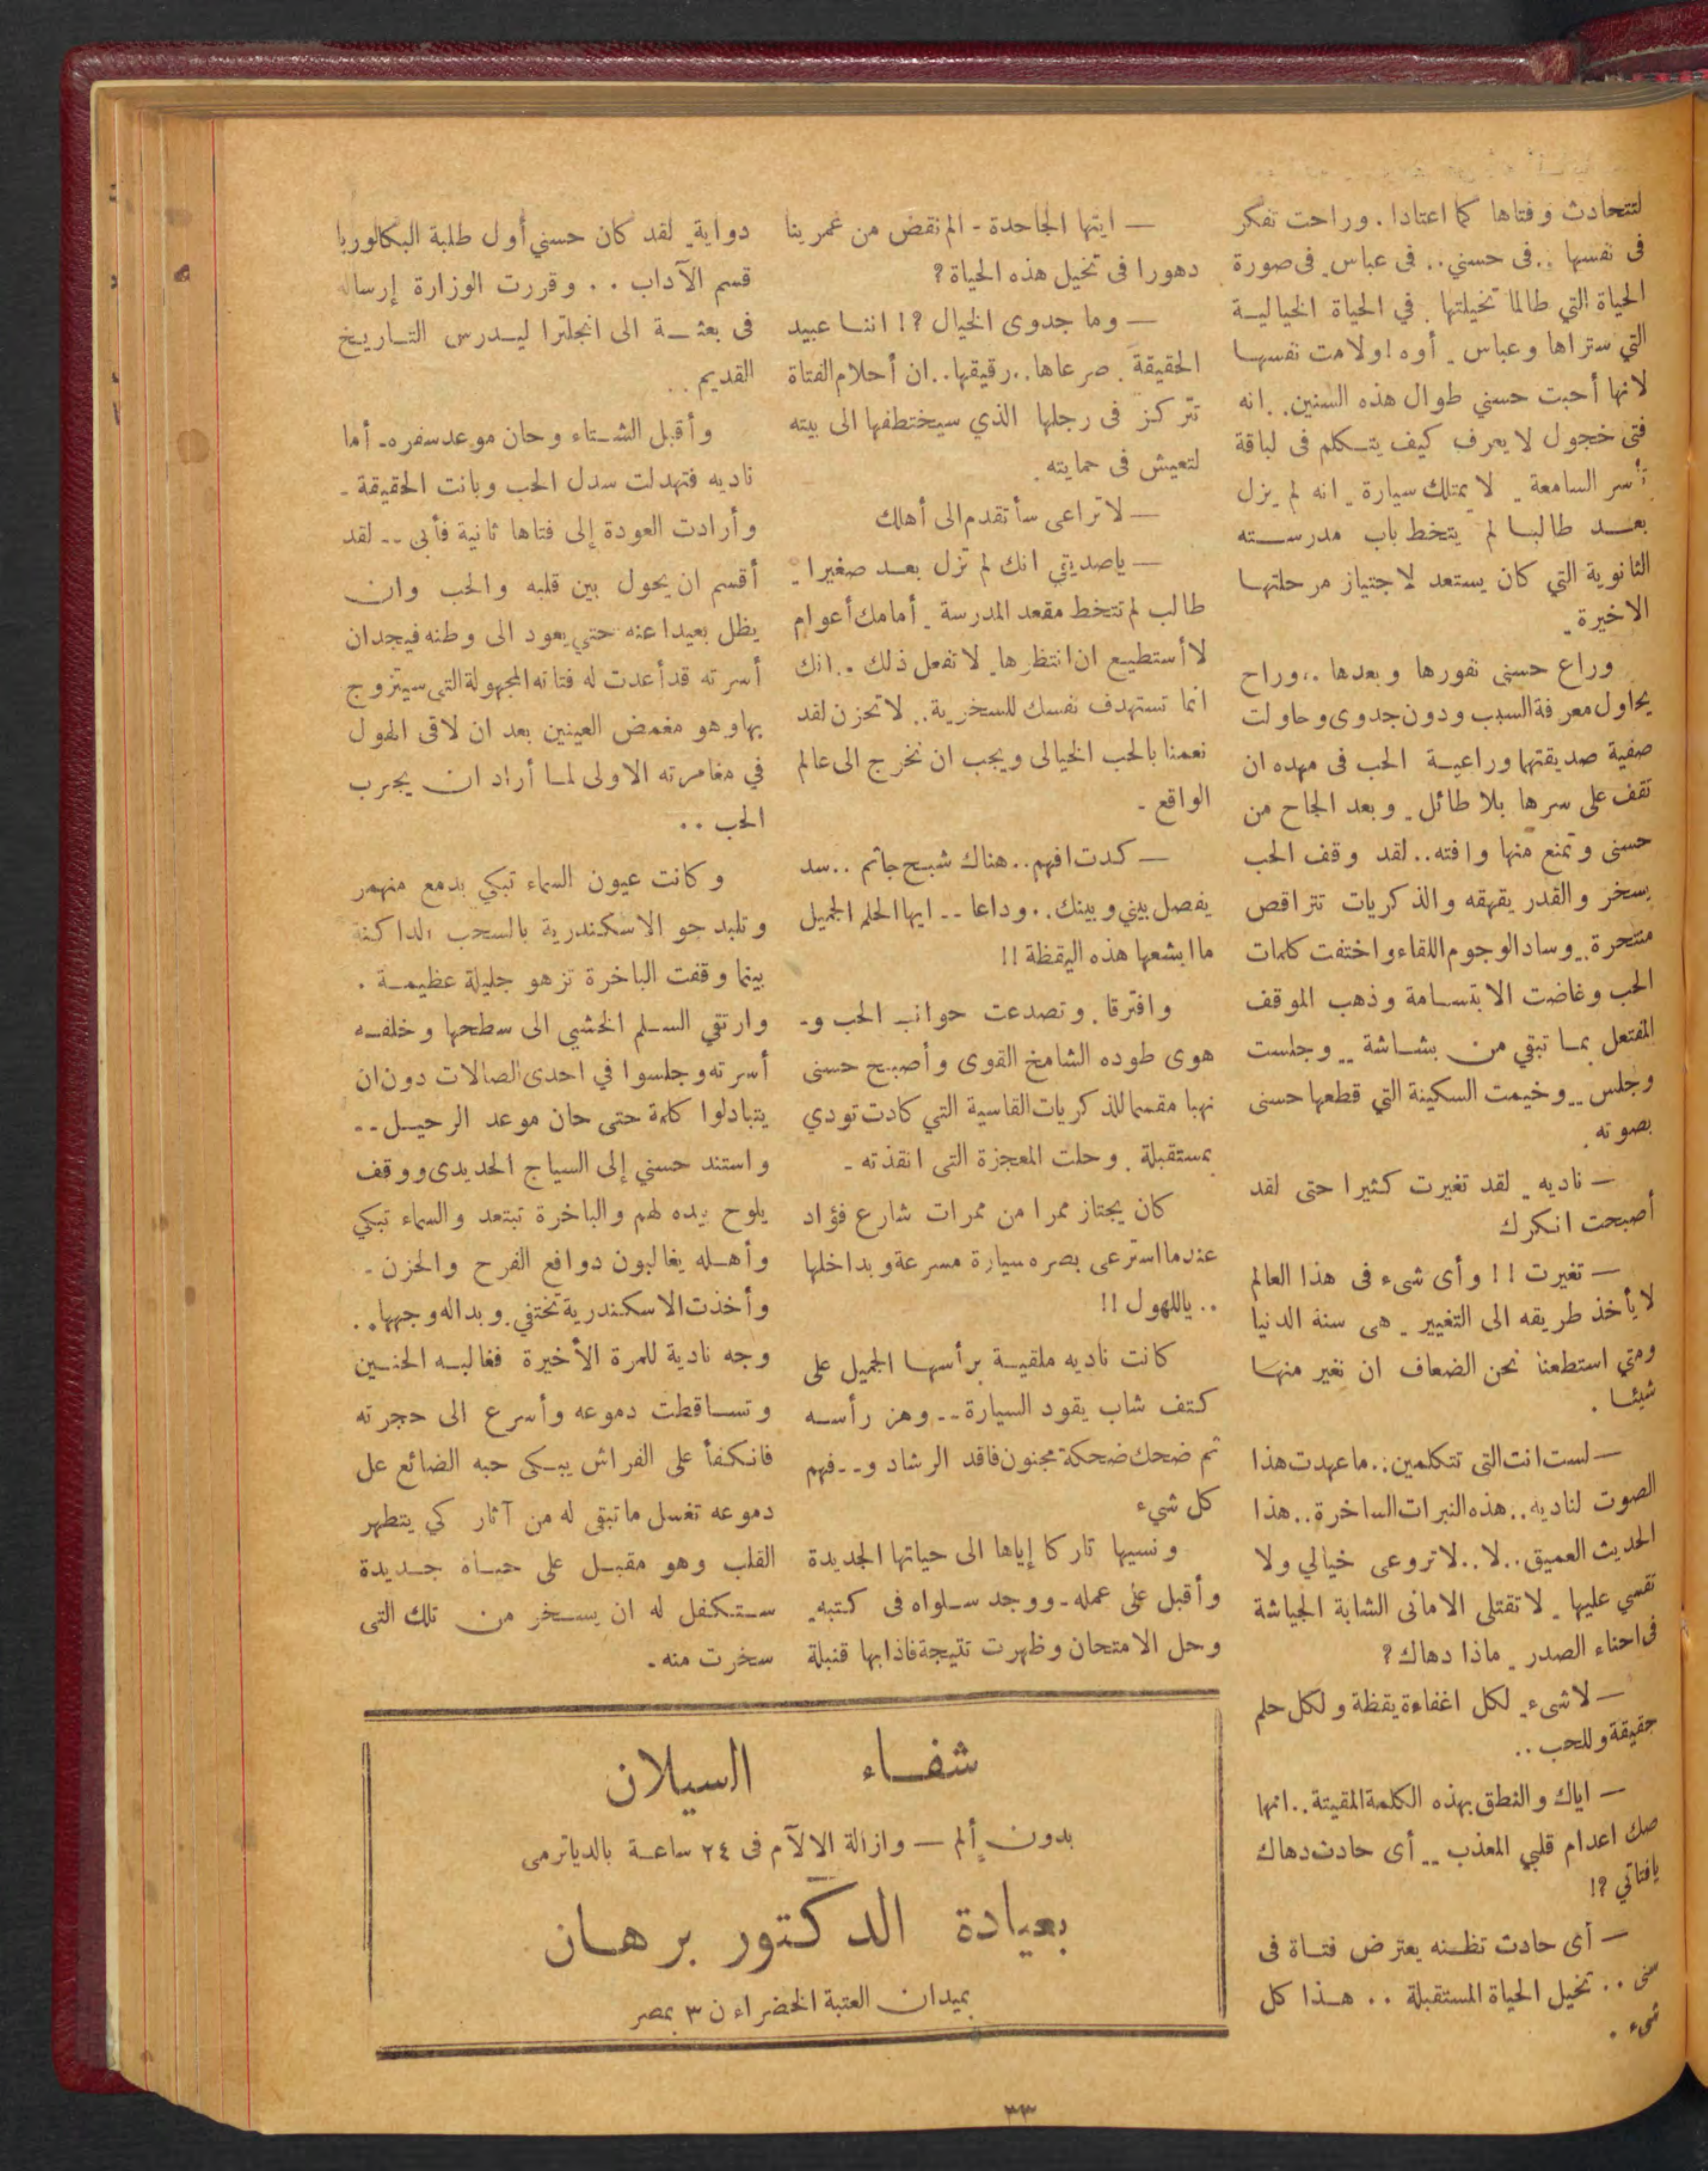 لتتحادث وفتاها كما اعتادا . وراحت تفكر
فى نفسها .. فى حسني .. فى عباس. فى صورة
الحياة التي طالما تخيلتها . في الحياة الخياليـة
التي ستراها وعباس . أوه ! ولامت نفسهـا
لانها أحبت حسني طوال هذه السنين . . انه
فتى خجول لا يعرف كيف يتـكلم فى لباقة
تأسر السامعة . لا يمتلك سيارة . انه لم يزل
بعـد طالبـا لم يتخط باب مدرسـته
الثانوية التي كان يستعد لاجتياز مرحلتهـا
الاخيرة .
وراع حسنى نفورها وبعدها .. وراح
يحاول معرفة السبب ودون جدوى وحاولت
صفية صديقتهما وراعيـة الحب فى مهده ان
تقف على سرها بلا طائل . وبعد الحاح من
حسنى وتمنع منها وافته .. لقد وقف الحب
يسخر والقدر يقهقه والذكريات تتراقص
منتحرة .. وساد الوجوم اللقاء واختفت كلمات
الحب وغاضت الابتسـامة وذهب الموقف
المفتعل بمـا تبقي من بشـاشة .. وجلست
وجلس .. وخيمت السكينة التي قطعها حسنى
بصوته .
— ناديه . لقد تغيرت كثيرا حتى لقد
أصبحت انـكرك
— تغيرت ! ! وأى شىء فى هذا العالم
لا يأخذ طريقه الى التغيير . هى سنة الدنيا
ومتي استطعنا نحن الضعاف ان نغير منهـا
شيئـا .
— لست انت التى تتكلمين .. ما عهدت هذا
الصوت لناديه .. هذه النبرات الساخرة .. هذا
الحديث العميق .. لا .. لا تروعى خيالي ولا
تقسي عليها . لا تقتلى الامانى الشابة الجياشة
فى احناء الصدر . ماذا دهاك ؟
— لاشىء . لكل اغفاءة يقظة ولكل حلم
حقيقة وللحب ..
— اياك والنطق بهذه الكلمة المقيتة .. انها
صك اعدام قلبي المعذب .. أى حادث دهاك
يافتاتي ؟!
— أى حادث تظـنه يعترض فتـاة فى
سنى .. تخيل الحياة المستقبلة .. هـذا كل
شىء .
— ايتها الجاحدة - الم نقض من عمرينا
دهورا فى تخيل هذه الحياة ؟
— وما جدوى الخيال ؟! اننـا عبيد
الحقيقة . صرعاها .. رقيقها .. ان أحلام الفتاة
تتركز فى رجلها الذي سيختطفها الى بيته
لتعيش فى حمايته .
— لا تراعى سأتقدم الى أهلك
— ياصديقي انك لم تزل بعـد صغيرا .
طالب لم تتخط مقعد المدرسة . أمامك أعوام
لا أستطيـع ان انتظرها . لا تفعل ذلك . . انك
انما تستهدف نفسك للسخرية .. لا تحزن لقد
نعمنا بالحب الخيالى ويجب ان نخرج الى عالم
الواقع .
— كدت افهم .. هناك شبـح جاثم .. سد
يفصل بيني وبينك .. وداعا .. ايها الحلم الجميل
ما ابشعها هذه اليقظة !!
وافترقا . وتصدعت حوانب الحب و-
هوى طوده الشامخ القوى وأصبـح حسنى
نهبا مقسما للذكريات القاسية التي كادت تودي
بمستقبلة . وحلت المعجزة التى انقذته .
كان يجتاز ممرا من ممرات شارع فؤاد
عندما استرعى بصره سيارة مسرعة وبداخلها
.. ياللهول !!
كانت ناديه ملقيـة برأسهـا الجميل على
كتف شاب يقود السيارة .. وهز رأسـه
ثم ضحك ضحكة مجنون فاقد الرشاد و .. فهم
كل شيء
ونسيها تاركا إياها الى حياتها الجديدة
وأقبل على عمله . ووجد سـلواه فى كتبه .
وحل الامتحان وظهرت نتيجة فاذا بها قنبلة
دواية . لقد كان حسني أول طلبة البكالوريا
قسم الآداب .. وقررت الوزارة إرساله
فى بعثـة الى انجلترا ليـدرس التـاريـخ
القديم ..
وأقبل الشـتاء وحان موعد سفره . أما
ناديه فتهدلت سدل الحب وبانت الحقيقة .
وأرادت العودة إلى فتاها ثانية فأبى .. لقد
أقسم ان يحول بين قلبه والحب وان
يظل بعيدا عنه حتي يعود الى وطنه فيجدان
أسرته قد أعدت له فتاته المجهولة التى سيتزوج
بها وهو مغمض العينين بعد ان لاقى الهول
في مغامرته الاولى لمـا أراد ان يجرب
الحب ..
وكانت عيون السماء تبكي بدمع منهمر
وتلبد جو الاسكندرية بالسحب الداكنة
بينما وقفت الباخرة تزهو جليلة عظيمـة .
وارتقي السـلم الخشبي الى سطحها وخلفـه
أسرته وجلسوا في احدى الصالات دون ان
يتبادلوا كلمة حتى حان موعد الرحيـل ..
واستند حسني إلى السياج الحديدى ووقف
يلوح بيده لهم والباخرة تبتعد والسماء تبكي
وأهـله يغالبون دوافع الفرح والحزن .
وأخذت الاسكندرية تختفي . وبدا له وجهها ..
وجه نادية للمرة الأخيرة فغالبـه الحنـين
وتسـاقطت دموعه وأسرع الى حجرته
فانكفأ على الفراش يبـكى حبه الضائع عل
دموعه تغسل ما تبقى له من آثار كي يتطهر
القلب وهو مقبـل على حيـاة جـديدة
سـتكفل له ان يسـخر من تلك التى
سخرت منه .
شفـاء السيلان
بدون ألم — وازالة الالآم فى ٢٤ ساعـة بالدياترمى
بعيادة الدكتور برهـان
بميدان العتبة الخضراء ن ٣ بمصر
٣٣